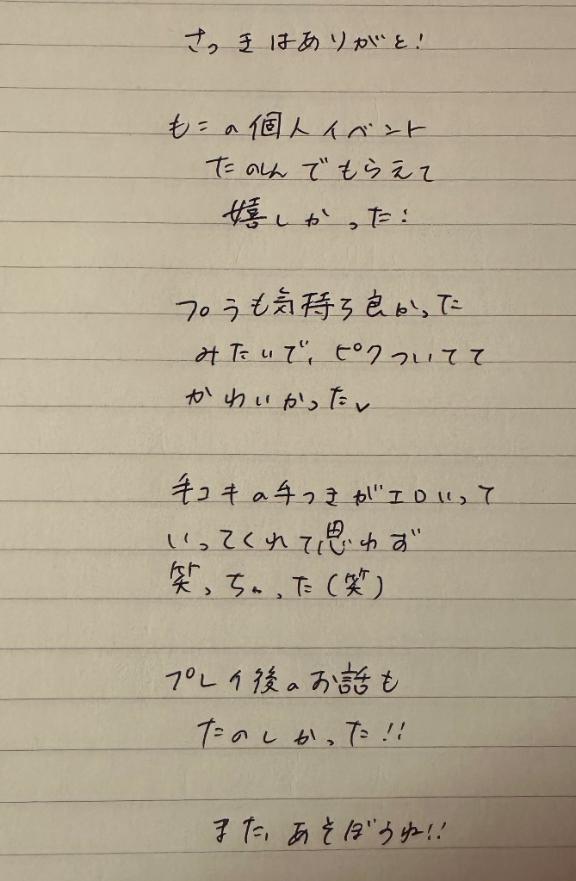 さっきはありがと!
もこの個人イベント
たのしんでもらえて
嬉しかった!
フ°ラも気持ち良かった
みたいで、ピクついてて
かわいかった✓
手コキの手つきがエロいって
いってくれて思わず
笑っちゃった(笑)
プレイ後のお話も
たのしかった!!
また、あそぼうね!!